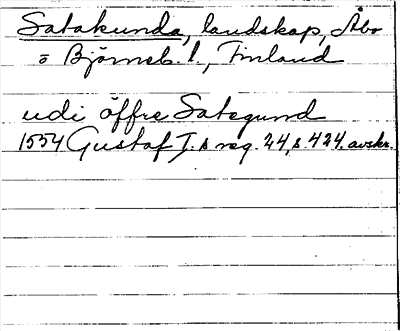 Satakunda, landskap, Åbo
o Björneb. l., Finland
udi öffre Sategund
1554 Gustaf I:s reg. 24, s. 424. avskr.